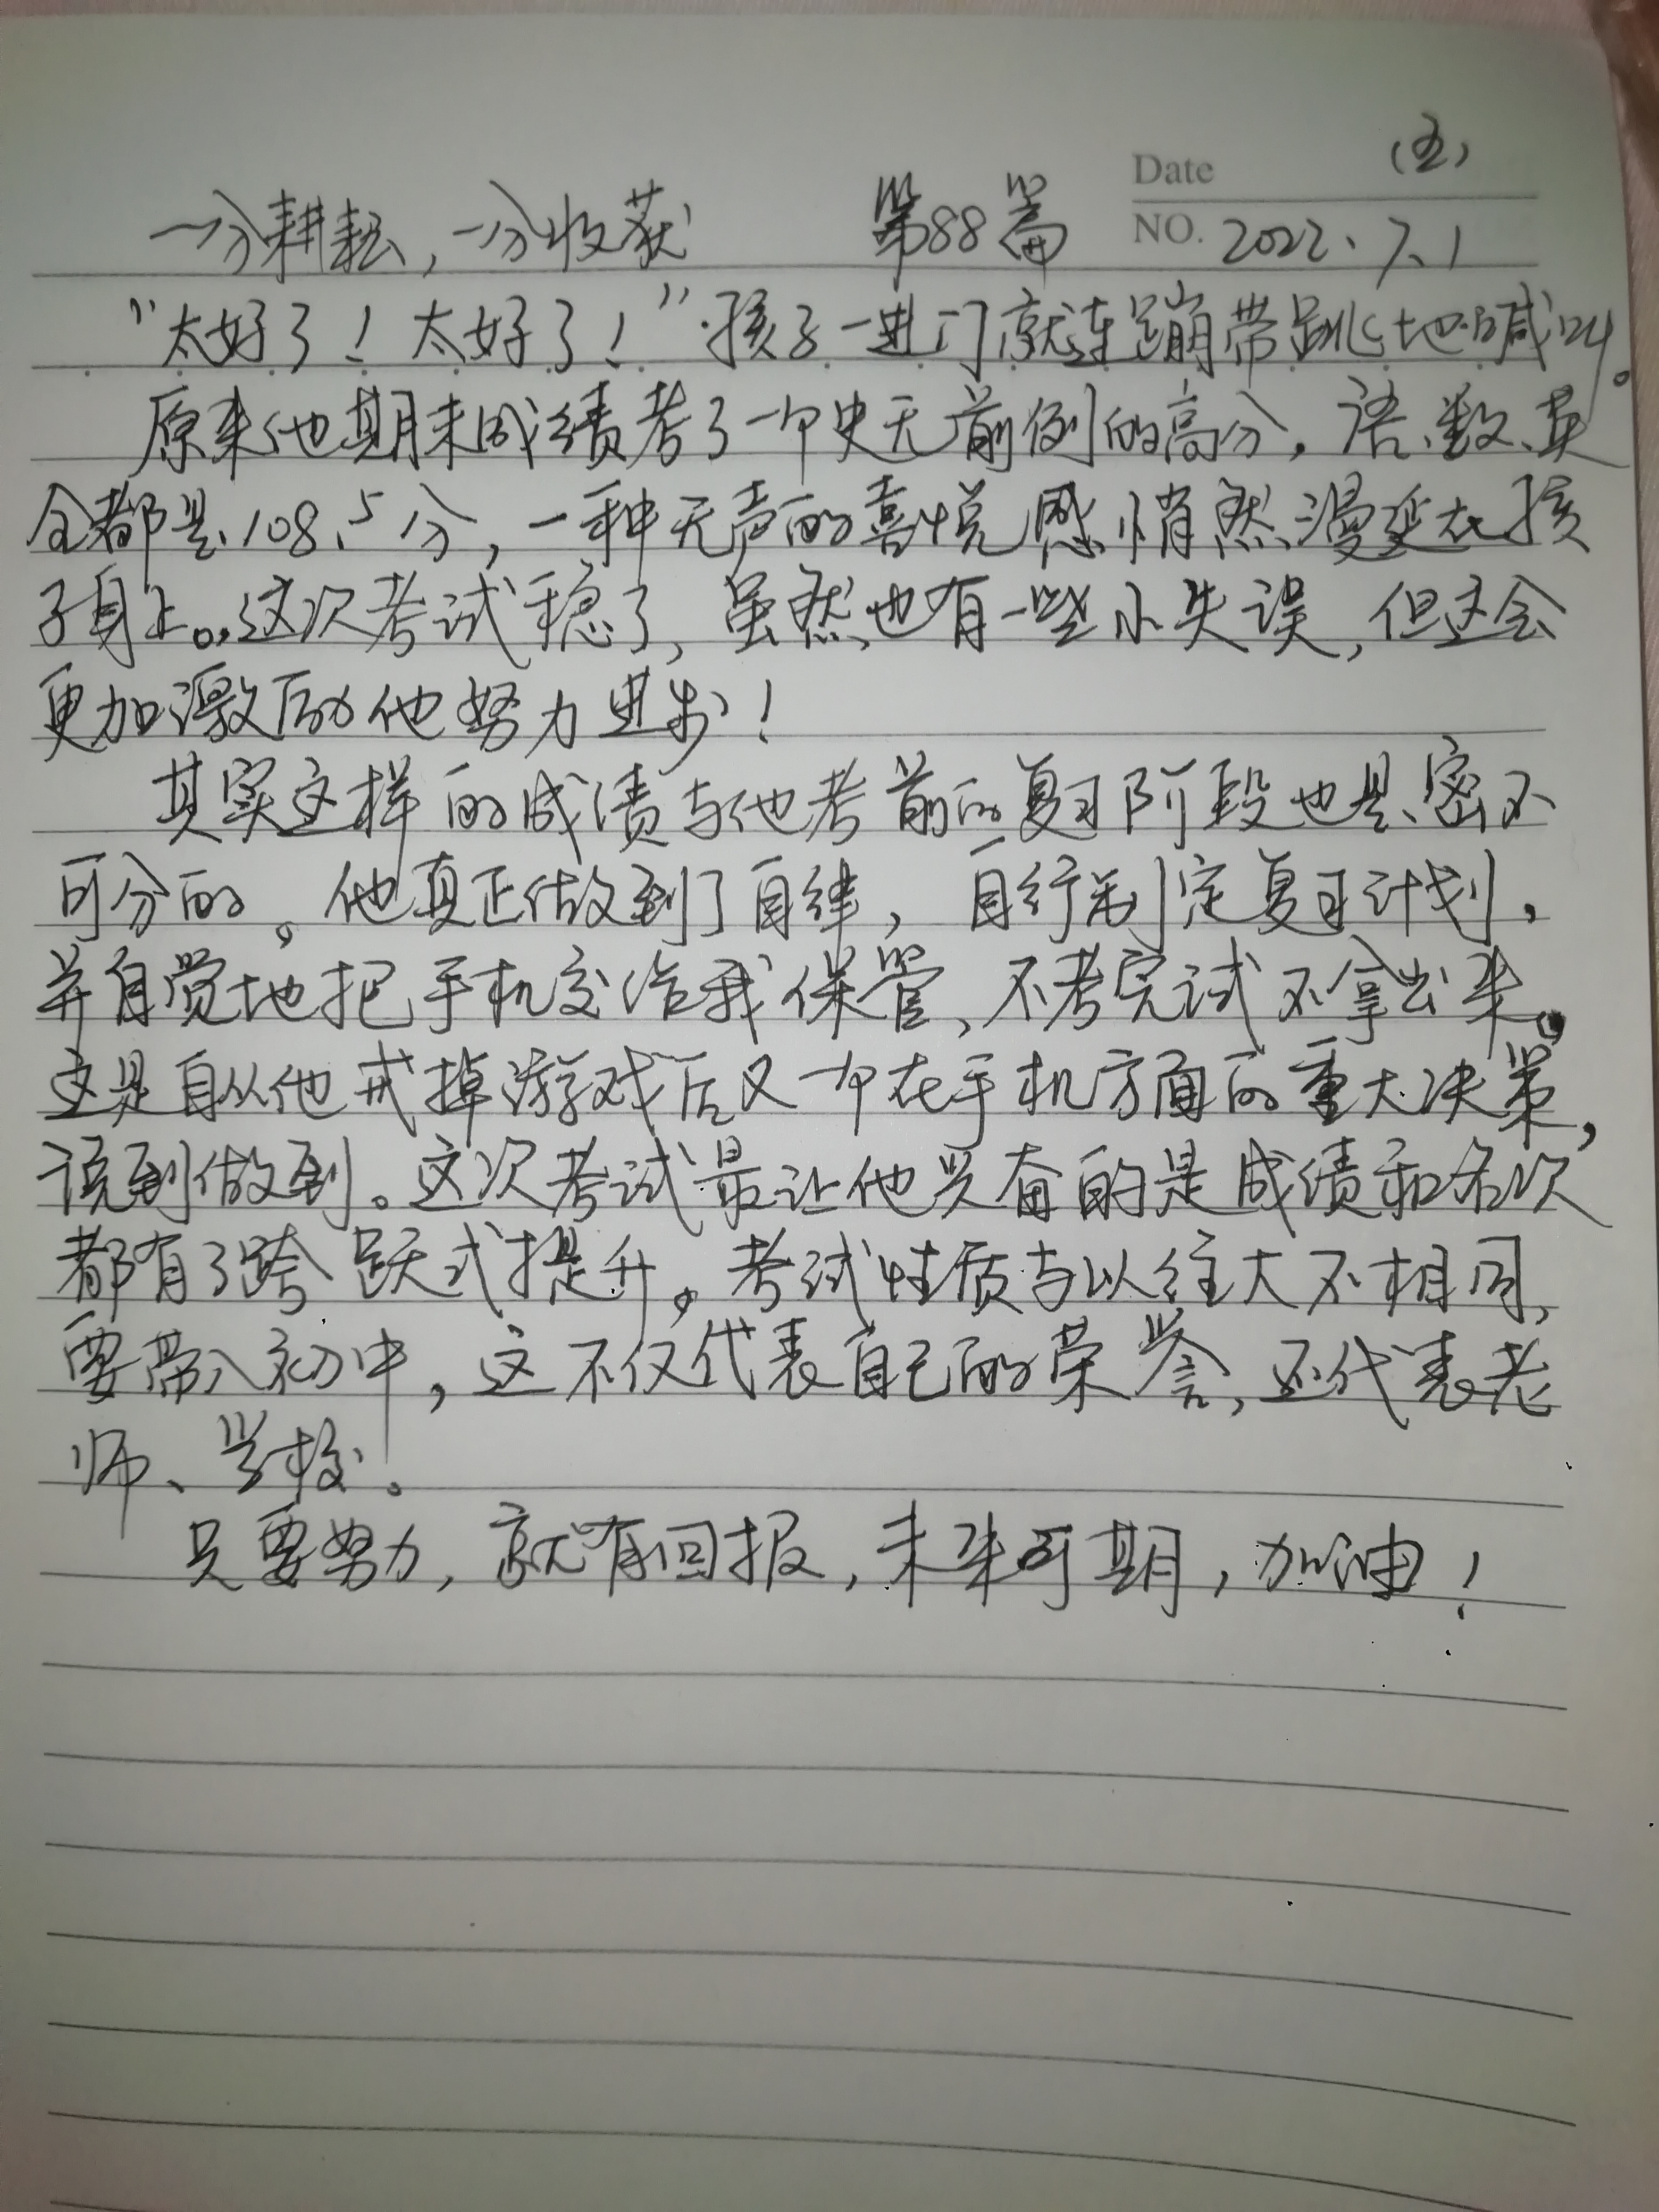 Date (五)
一分耕耘，一分收获 第88篇 NO. 2022.7.1
“太好了！太好了！”孩子一进门就连蹦带跳地喊叫。
原来他期末成绩考了一个史无前例的高分，语、数、英
全都是108.5分，一种无声的喜悦感悄然漫延在孩
子身上。这次考试稳了，虽然也有一些小失误，但这会
更加激励他努力进步！
其实这样的成绩与他考前的复习阶段也是密不
可分的。他真正做到了自律，自行制定复习计划，
并自觉地把手机交给我保管，不考完试不拿出来。
这是自从他戒掉游戏后又一个在手机方面的重大决策，
说到做到。这次考试最让他兴奋的是成绩和名次
都有了跨跃式提升。考试性质与以往大不相同，
要带入初中，这不仅代表自己的荣誉，还代表老
师、学校。
只要努力，就有回报，未来可期，加油！